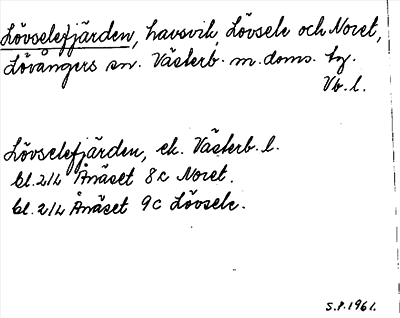 Lövselefjärden, havsvik, Lövsele och Noret,
Lövångers sn. Västerb. m. doms. tg.
Vb. l.
Lövselefjärden, ek. Västerb. l.
bl. 214 Ånäset 8c Noret.
bl. 214 Ånäset 9c Lövsele.
S.P. 1961.